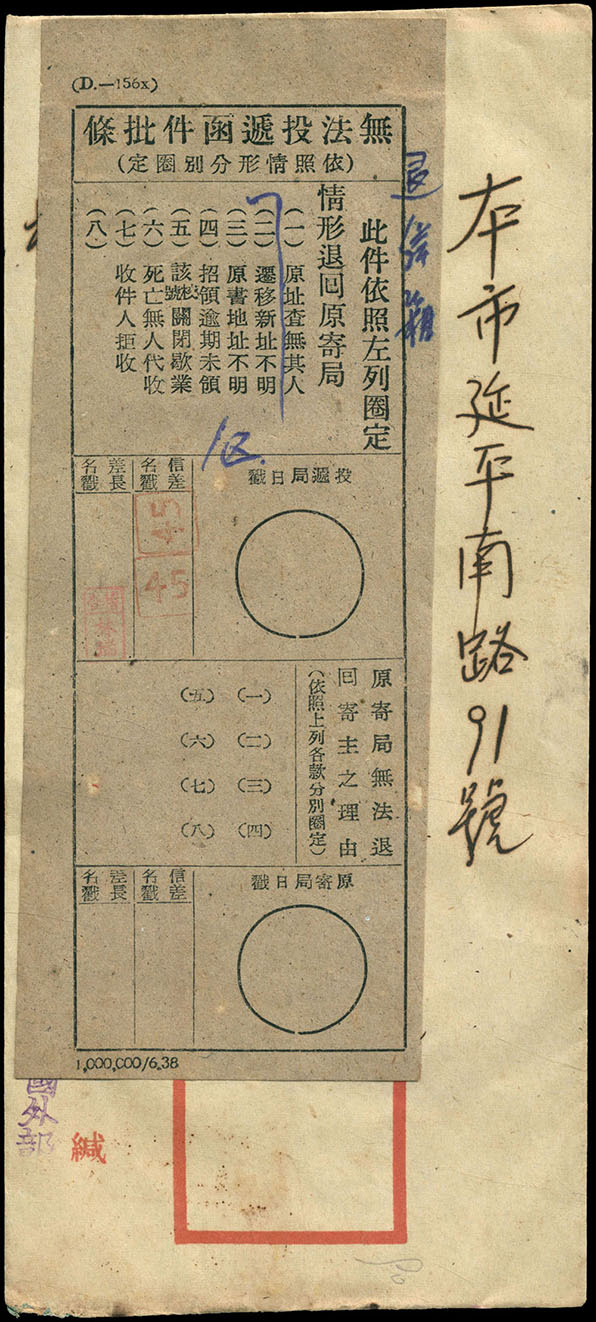 本市延平南路91號
(D.—156x)
無法投遞函件批條
(依照情形分別圈定)
此件依照左列圈定
情形退回原寄局
(一) 原址查無其人
(二) 遷移新址不明
(三) 原書地址不明
(四) 招領逾期未領
(五) 該號關閉歇業
(六) 死亡無人代收
(七) 收件人拒收
(八)
投遞局日戳
信差名戳
差長名戳
45
45
原寄局無法退
回寄主之理由
(依照上列各款分別圈定)
(一) (五)
(二) (六)
(三) (七)
(四) (八)
原寄局日戳
信差名戳
差長名戳
1,000,000/6.38
國外部
緘